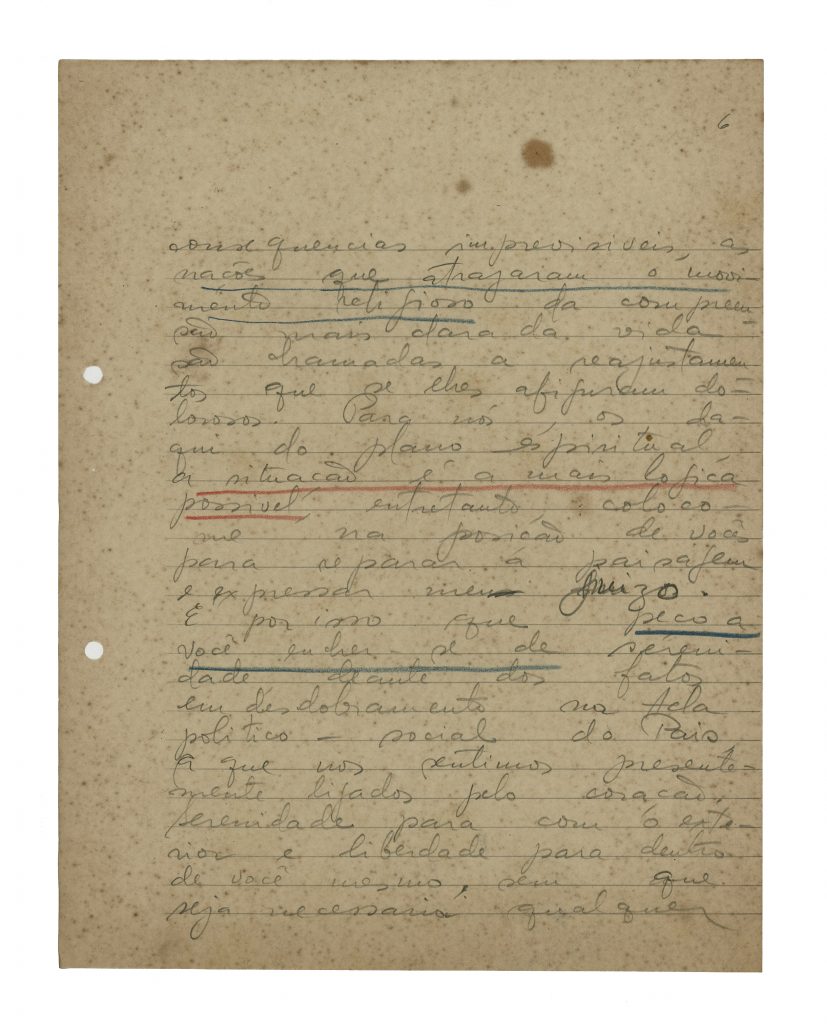 6
consequencias imprevisiveis, as
nações que atrazaram o movi-
mento religioso da compreen-
são mais clara da vida
são chamadas a reajustamen
tos que se lhes afiguram do-
lorosos. Para nós, os da-
qui do plano espiritual
a situação é a mais logica
possivel, entretanto, coloco-
me na posição de vocês
para reparar a paisagem
e expressar meu juizo.
É por isso que peço a
você encher-se de sereni-
dade deante dos fatos
em desdobramento na tela
politico-social do País,
a que nos sentimos presente-
mente ligados pelo coração,
serenidade para com o exte-
rior e liberdade para dentro
de você mesmo, sem que
seja necessaria qualquer